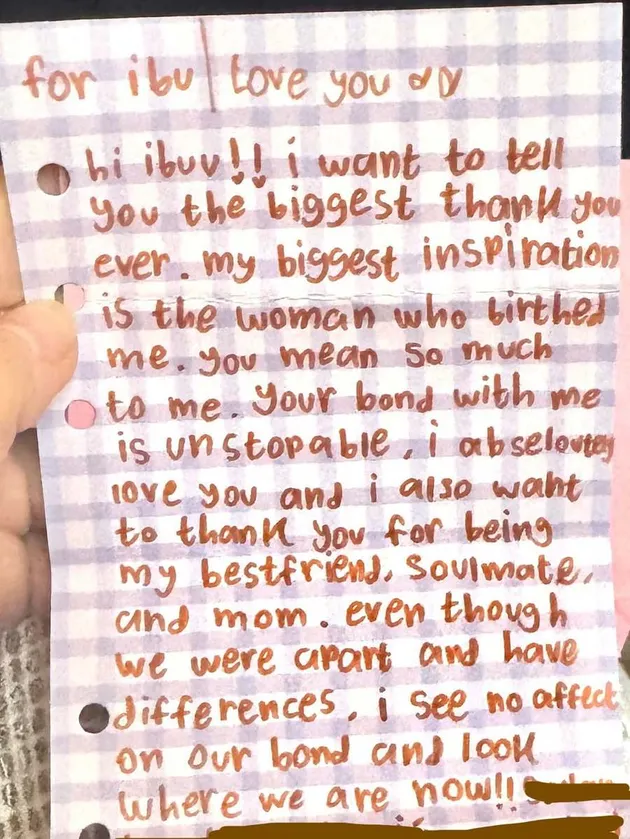 for ibu | Love you
hi ibuu!! i want to tell
you the biggest thank you
ever. my biggest inspiration
is the woman who birthed
me. you mean so much
to me. Your bond with me
is unstopable, i abseloutely
love you and i also want
to thank you for being
my bestfriend, soulmate,
and mom. even though
we were apart and have
differences, i see no affect
on our bond and look
where we are now!!